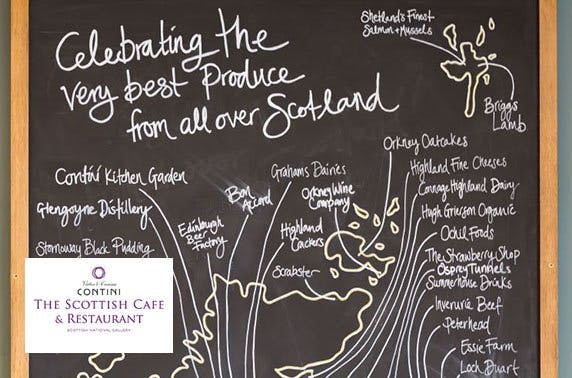 Celebrating the
very best Produce
from all over Scotland
Shetland's Finest
Salmon + Mussels
Briggs
Lamb
Contini Kitchen Garden
Glengoyne Distillery
Stornoway Black Pudding
Edinburgh
Beer
Factory
Bon
Accord
Grahams Dairies
Orkney Wine
Company
Highland
Crackers
Scrabster
Orkney Oatcakes
Highland Fine Cheeses
Connage Highland Dairy
Hugh Grierson Organic
Ochil Foods
The Strawberry Shop
Osprey Tunnels
Summerhouse Drinks
Inverurie Beef
Peterhead
Essie Farm
Loch Duart
Victor & Carina
CONTINI
THE SCOTTISH CAFE
& RESTAURANT
SCOTTISH NATIONAL GALLERY